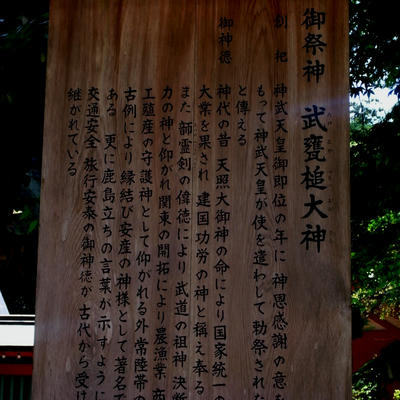 御祭神 武甕槌大神
創祀 神武天皇御即位の年に 神恩感謝の意を
もって神武天皇が使を遣わして勅祭された
と傳える
御神徳
神代の昔 天照大御神の命により国家統一の
大業を果され 建国功労の神と稱え奉る
また 韴霊剣の偉徳により 武道の祖神 決断
力の神と仰がれ 関東の開拓により 農漁業 商
工殖産の守護神として仰がれる外 常陸帯の
古例により 縁結び安産の神様として著名で
ある 更に鹿島立ちの言葉が示すように
交通安全 旅行安泰の御神徳が 古代から受け
継がれている